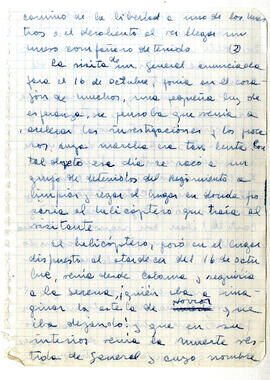 camino de la libertad a uno de los nues
tros o el derecho ver llegar un
nuevo compañero detenido. (2)
La visita de un general anunciada
para el 16 de octubre, ponía en el cora-
zón de muchos, una pequeña luz de
esperanza, se pensaba que venía a
acelerar las investigaciones y los
cuya marcha era tan lenta. Con
tal objeto ese día se sacó a un
grupo de detenidos del Regimiento a
limpiar y regar el lugar en donde po
saría el helicóptero que traía al
visitante.
El helicóptero, posó en el lugar
dispuesto el atardecer del 16 de octu
bre, venía desde Calama, y seguiría
a la Serena, ¡quién iba a ima-
ginar la estela de horror que
iba dejando! y que en su
interior venía la muerte ves
tida de General y cuyo nombre